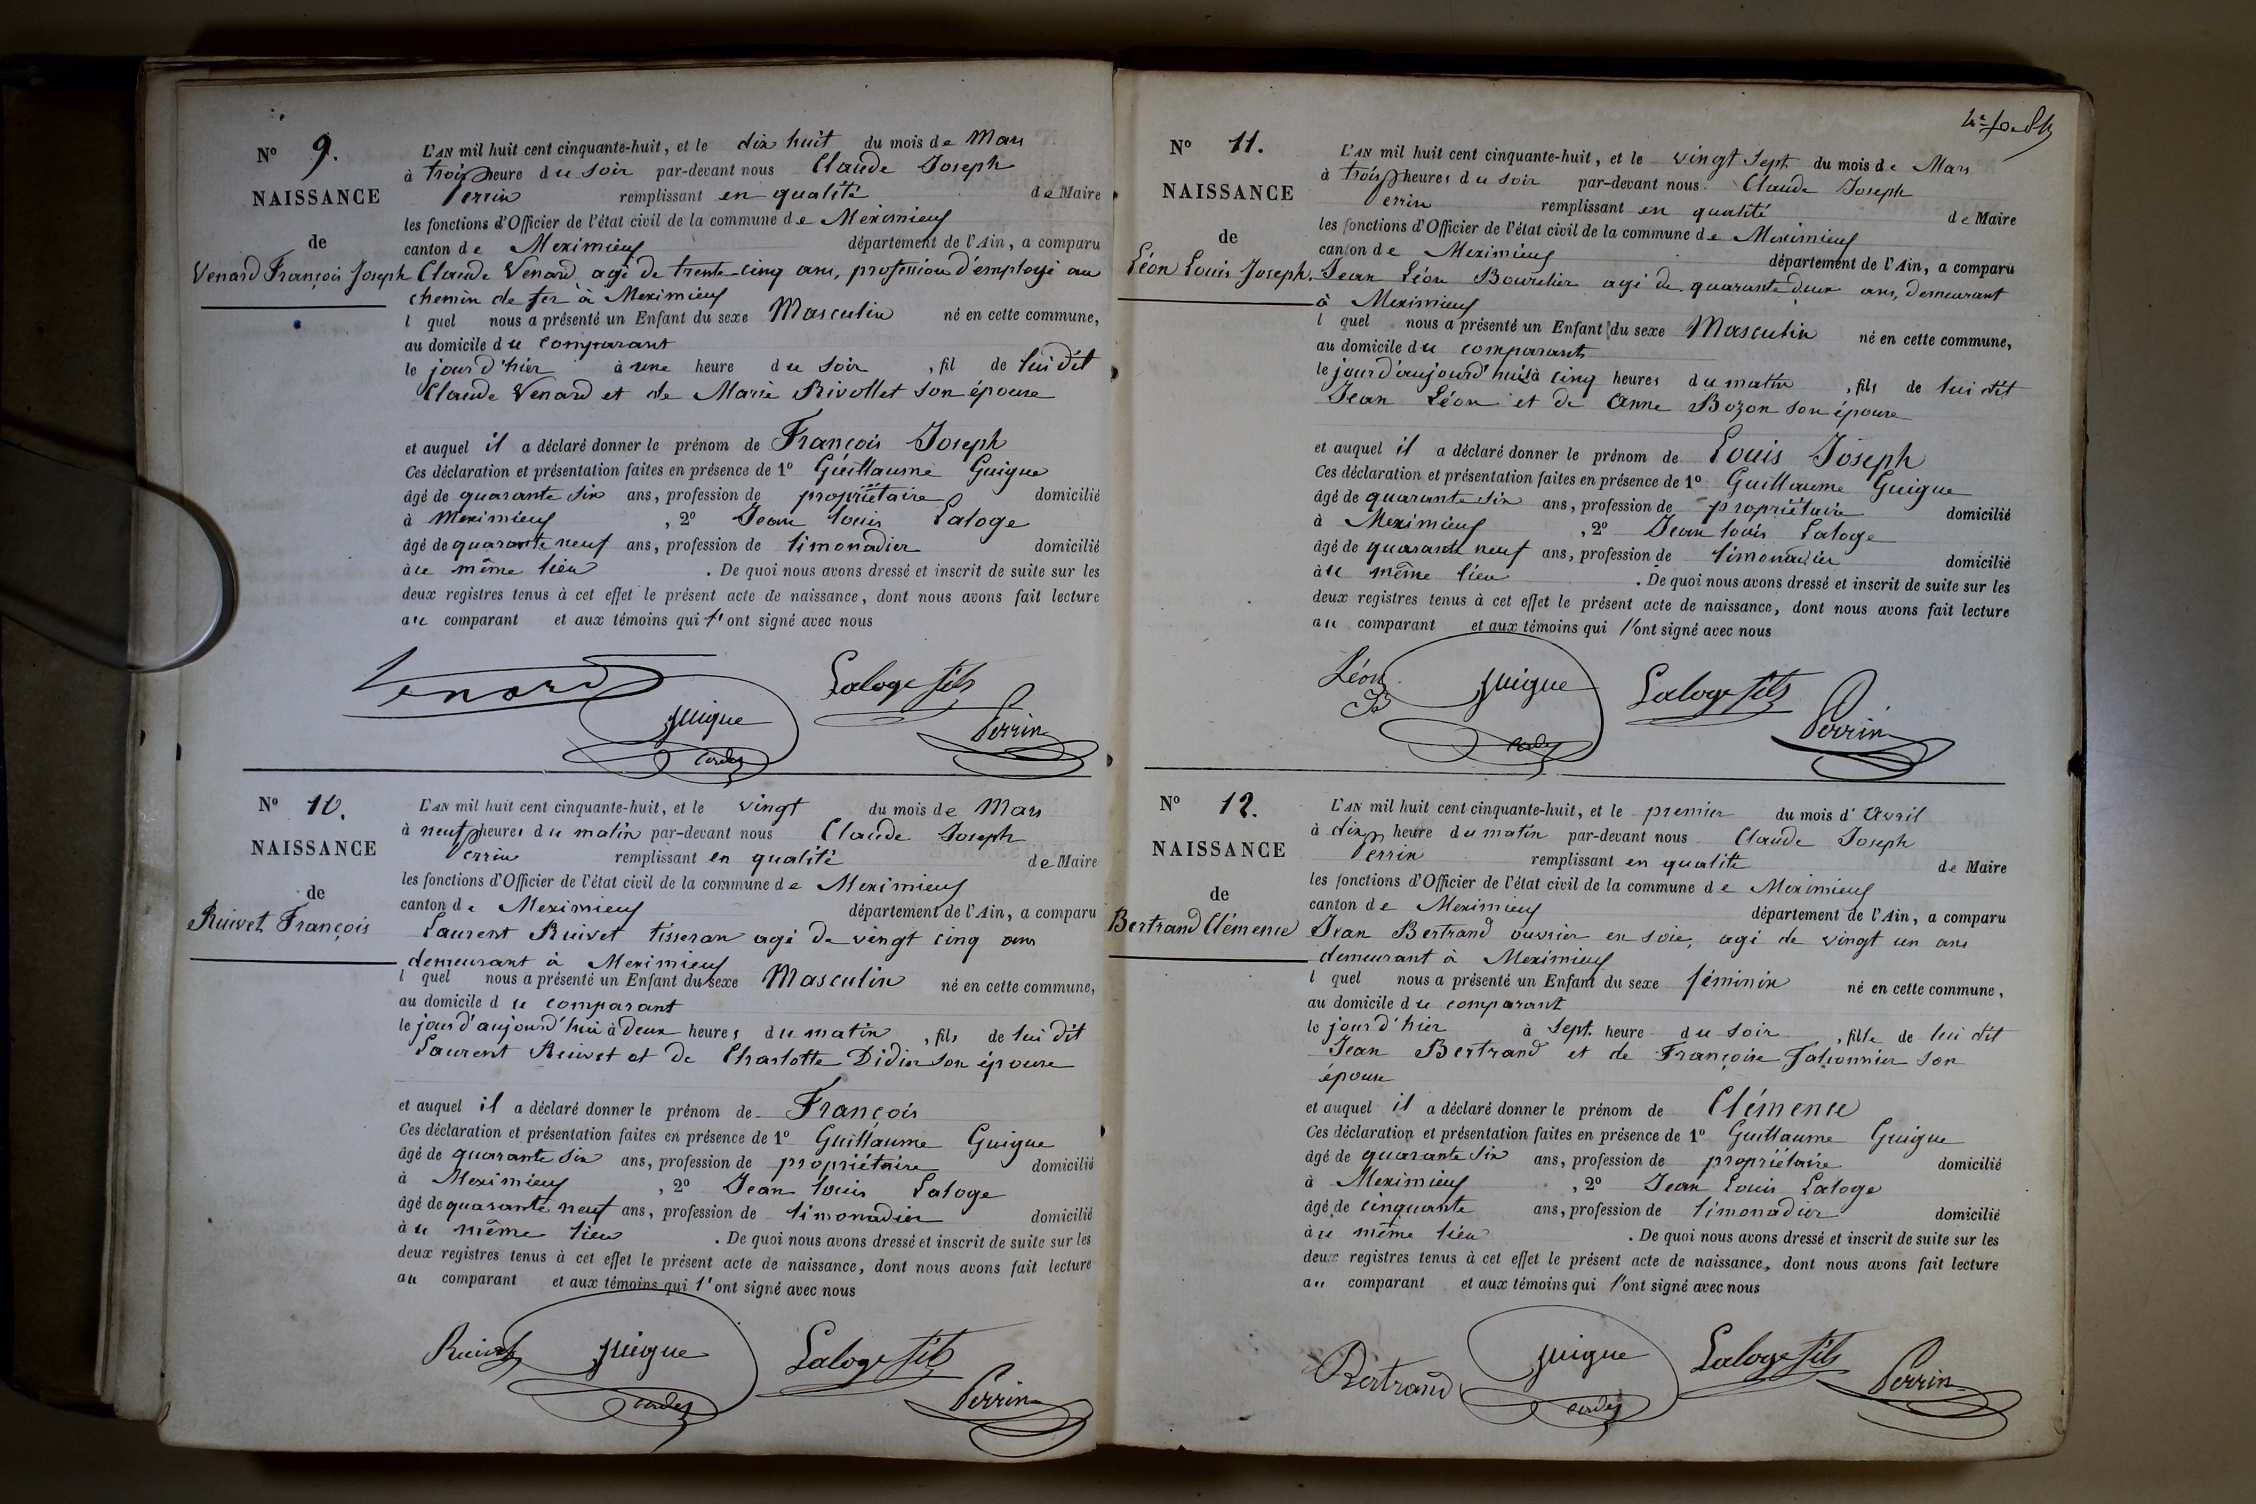 N° 9.
NAISSANCE
de
Venard François Joseph
L'AN mil huit cent cinquante-huit, et le dix huit du mois de Mars
à trois heure du soir par-devant nous Claude Joseph
Perrin remplissant en qualité de Maire
les fonctions d'Officier de l'état civil de la commune de Meximieux
canton de Meximieux département de l'Ain, a comparu
Claude Venard agé de trente-cinq ans, profession d'employé au
chemin de fer à Meximieux
l quel nous a présenté un Enfant du sexe Masculin né en cette commune,
au domicile du comparant
le jour d'hier à une heure du soir, fil de lui dit
Claude Venard et de Marie Rivollet son épouse
et auquel il a déclaré donner le prénom de François Joseph
Ces déclaration et présentation faites en présence de 1° Guillaume Guigue
âgé de quarante six ans, profession de propriétaire domicilié
à Meximieux, 2° Jean Louis Laloge
âgé de quarante neuf ans, profession de limonadier domicilié
àu même lieu. De quoi nous avons dressé et inscrit de suite sur les
deux registres tenus à cet effet le présent acte de naissance, dont nous avons fait lecture
au comparant et aux témoins qui l'ont signé avec nous
Venard
Guigue
Laloge fils
Perrin
N° 10.
NAISSANCE
de
Ruivet François
L'AN mil huit cent cinquante-huit, et le vingt du mois de Mars
à neuf heures du matin par-devant nous Claude Joseph
Perrin remplissant en qualité de Maire
les fonctions d'Officier de l'état civil de la commune de Meximieux
canton de Meximieux département de l'Ain, a comparu
Laurent Ruivet tisseran agé de vingt cinq ans
demeurant à Meximieux
l quel nous a présenté un Enfant du sexe Masculin né en cette commune,
au domicile du comparant
le jour d'aujourd'hui à deux heures du matin, fils de lui dit
Laurent Ruivet et de Charlotte Didier son épouse
et auquel il a déclaré donner le prénom de François
Ces déclaration et présentation faites en présence de 1° Guillaume Guigue
âgé de quarante six ans, profession de propriétaire domicilié
à Meximieux, 2° Jean Louis Laloge
âgé de quarante neuf ans, profession de limonadier domicilié
àu même lieu. De quoi nous avons dressé et inscrit de suite sur les
deux registres tenus à cet effet le présent acte de naissance, dont nous avons fait lecture
au comparant et aux témoins qui l'ont signé avec nous
Ruivet
Guigue
Laloge fils
Perrin
N° 11.
NAISSANCE
de
Léon Louis Joseph.
L'AN mil huit cent cinquante-huit, et le vingt sept du mois de Mars
à trois heures du soir par-devant nous Claude Joseph
Perrin remplissant en qualité de Maire
les fonctions d'Officier de l'état civil de la commune de Meximieux
canton de Meximieux département de l'Ain, a comparu
Jean Léon Bourelier agé de quarante deux ans, demeurant
à Meximieux
l quel nous a présenté un Enfant du sexe Masculin né en cette commune,
au domicile du comparant
le jour d'aujourd'hui à cinq heures du matin, fils de lui dit
Jean Léon et de Anne Bozon son épouse
et auquel il a déclaré donner le prénom de Louis Joseph
Ces déclaration et présentation faites en présence de 1° Guillaume Guigue
âgé de quarante six ans, profession de propriétaire domicilié
à Meximieux, 2° Jean Louis Laloge
âgé de quarante neuf ans, profession de limonadier domicilié
àu même lieu. De quoi nous avons dressé et inscrit de suite sur les
deux registres tenus à cet effet le présent acte de naissance, dont nous avons fait lecture
au comparant et aux témoins qui l'ont signé avec nous
Léon
Guigue
Laloge fils
Perrin
N° 12.
NAISSANCE
de
Bertrand Clémence
L'AN mil huit cent cinquante-huit, et le premier du mois d'Avril
à dix heure du matin par-devant nous Claude Joseph
Perrin remplissant en qualité de Maire
les fonctions d'Officier de l'état civil de la commune de Meximieux
canton de Meximieux département de l'Ain, a comparu
Jean Bertrand ouvrier en soie, agé de vingt un ans
demeurant à Meximieux
l quel nous a présenté un Enfant du sexe féminin né en cette commune,
au domicile du comparant
le jour d'hier à sept heure du soir, fille de lui dit
Jean Bertrand et de Françoise Falconnier son
épouse
et auquel il a déclaré donner le prénom de Clémence
Ces déclaration et présentation faites en présence de 1° Guillaume Guigue
âgé de quarante six ans, profession de propriétaire domicilié
à Meximieux, 2° Jean Louis Laloge
âgé de cinquante ans, profession de limonadier domicilié
àu même lieu. De quoi nous avons dressé et inscrit de suite sur les
deux registres tenus à cet effet le présent acte de naissance, dont nous avons fait lecture
au comparant et aux témoins qui l'ont signé avec nous
Bertrand
Guigue
Laloge fils
Perrin